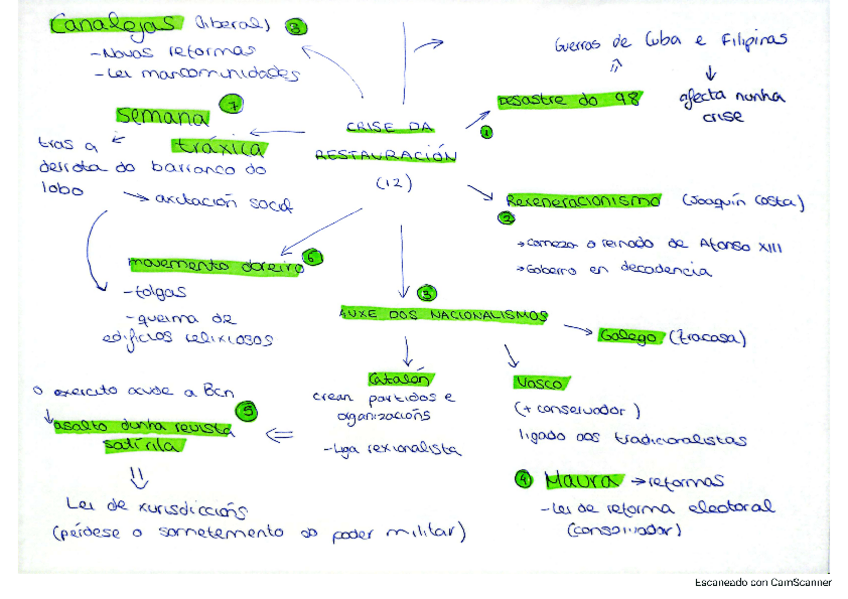 Canalejas (liberal) 3
-Novas reformas
-Lei mancomunidades
7
semana
tráxica
tras a
derrota do barranco do
lobo
axitación social
CRISE DA
RESTAURACIÓN
(12)
Guerras de Cuba e Filipinas
Desastre do 98
1
afecta nunha
crise
Rexeneracionismo (Joaquín Costa)
2
Comeza o reinado de Afonso XIII
Goberno en decadencia
movemento obreiro 6
-folgas
-queima de
edificios relixiosos
3
AUXE DOS NACIONALISMOS
Galego (fracasa)
Catalán
crean partidos e
organizacións
-Liga rexionalista
Vasco
(+ conservador)
ligado aos tradicionalistas
4 Maura → reformas
-Lei de reforma electoral
(conservador)
o exercito acude a Bcn
5
asalto dunha revista
satírica
Lei de xurisdiccións
(pérdese o sometemento ao poder militar)
Escaneado con CamScanner